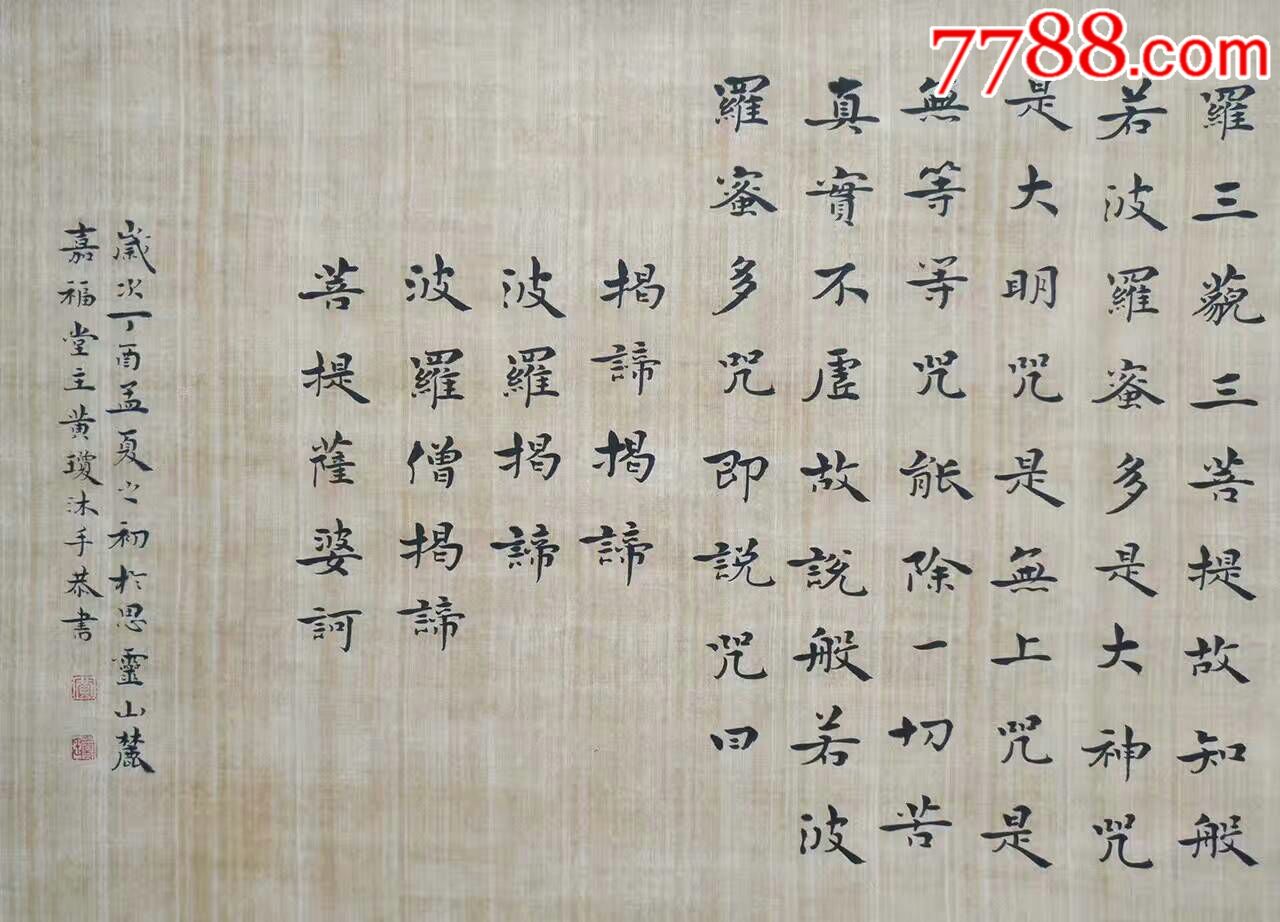 羅三藐三菩提故知般
若波羅蜜多是大神咒
是大明咒是無上咒是
無等等咒能除一切苦
真實不虛故說般若波
羅蜜多咒即說咒曰
揭諦揭諦
波羅揭諦
波羅僧揭諦
菩提薩婆訶
歲次丁酉孟夏之初於思靈山麓
嘉福堂主黃瓊沐手恭書
7788.com